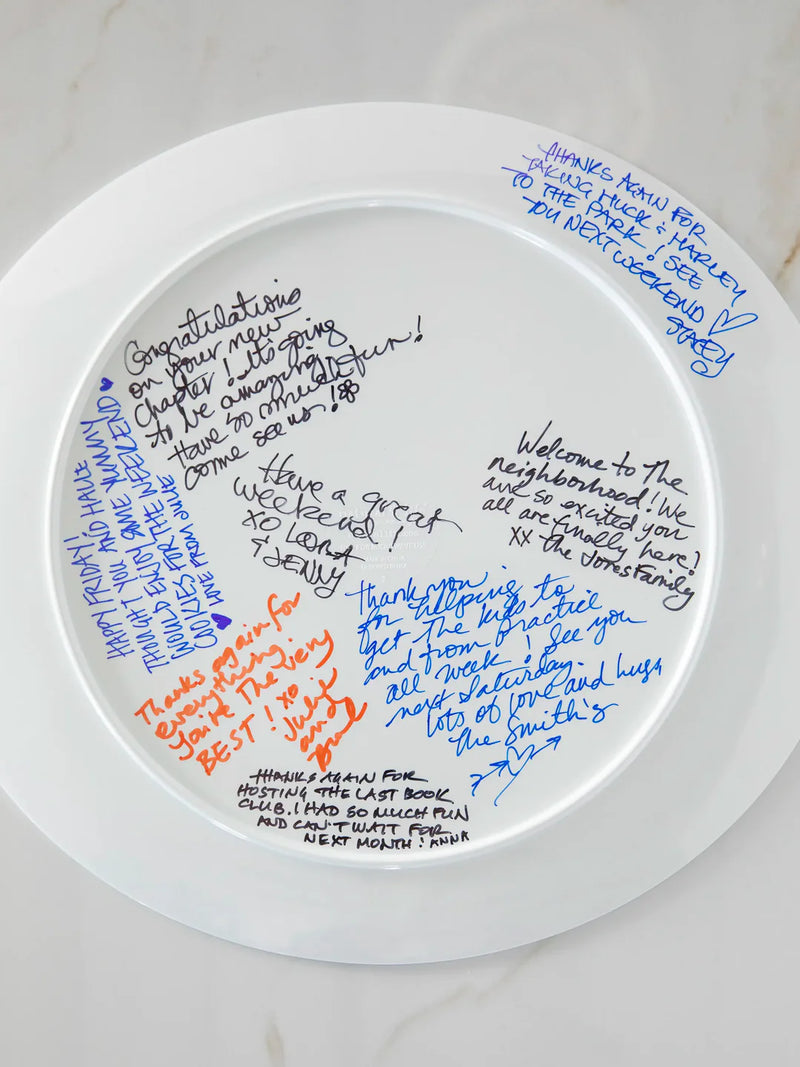 THANKS AGAIN FOR
TAKING HUCK & HARLEY
TO THE PARK! SEE
YOU NEXT WEEKEND ♡
STACEY
Congratulations
on your new
Chapter! It's going
to be amazing!
Have so much fun!
Come see us!
HAPPY FRIDAY!
THOUGHT YOU AND HALLE
WOULD ENJOY SOME YUMMY
COOKIES FOR THE WEEKEND ♥
♥ LOVE FROM JULIE
Have a great
weekend
XO LORA
& JENNY
Welcome to the
neighborhood! We
are so excited you
all are finally here!
XX The Jones Family
Thank you
for helping to
get the kids to
and from practice
all week! See you
next Saturday.
lots of love and hugs
The Smith's
Thanks again for
everything.
You're the very
BEST! xo
Julie
and
THANKS AGAIN FOR
HOSTING THE LAST BOOK
CLUB. I HAD SO MUCH FUN
AND CAN'T WAIT FOR
NEXT MONTH! ANNA